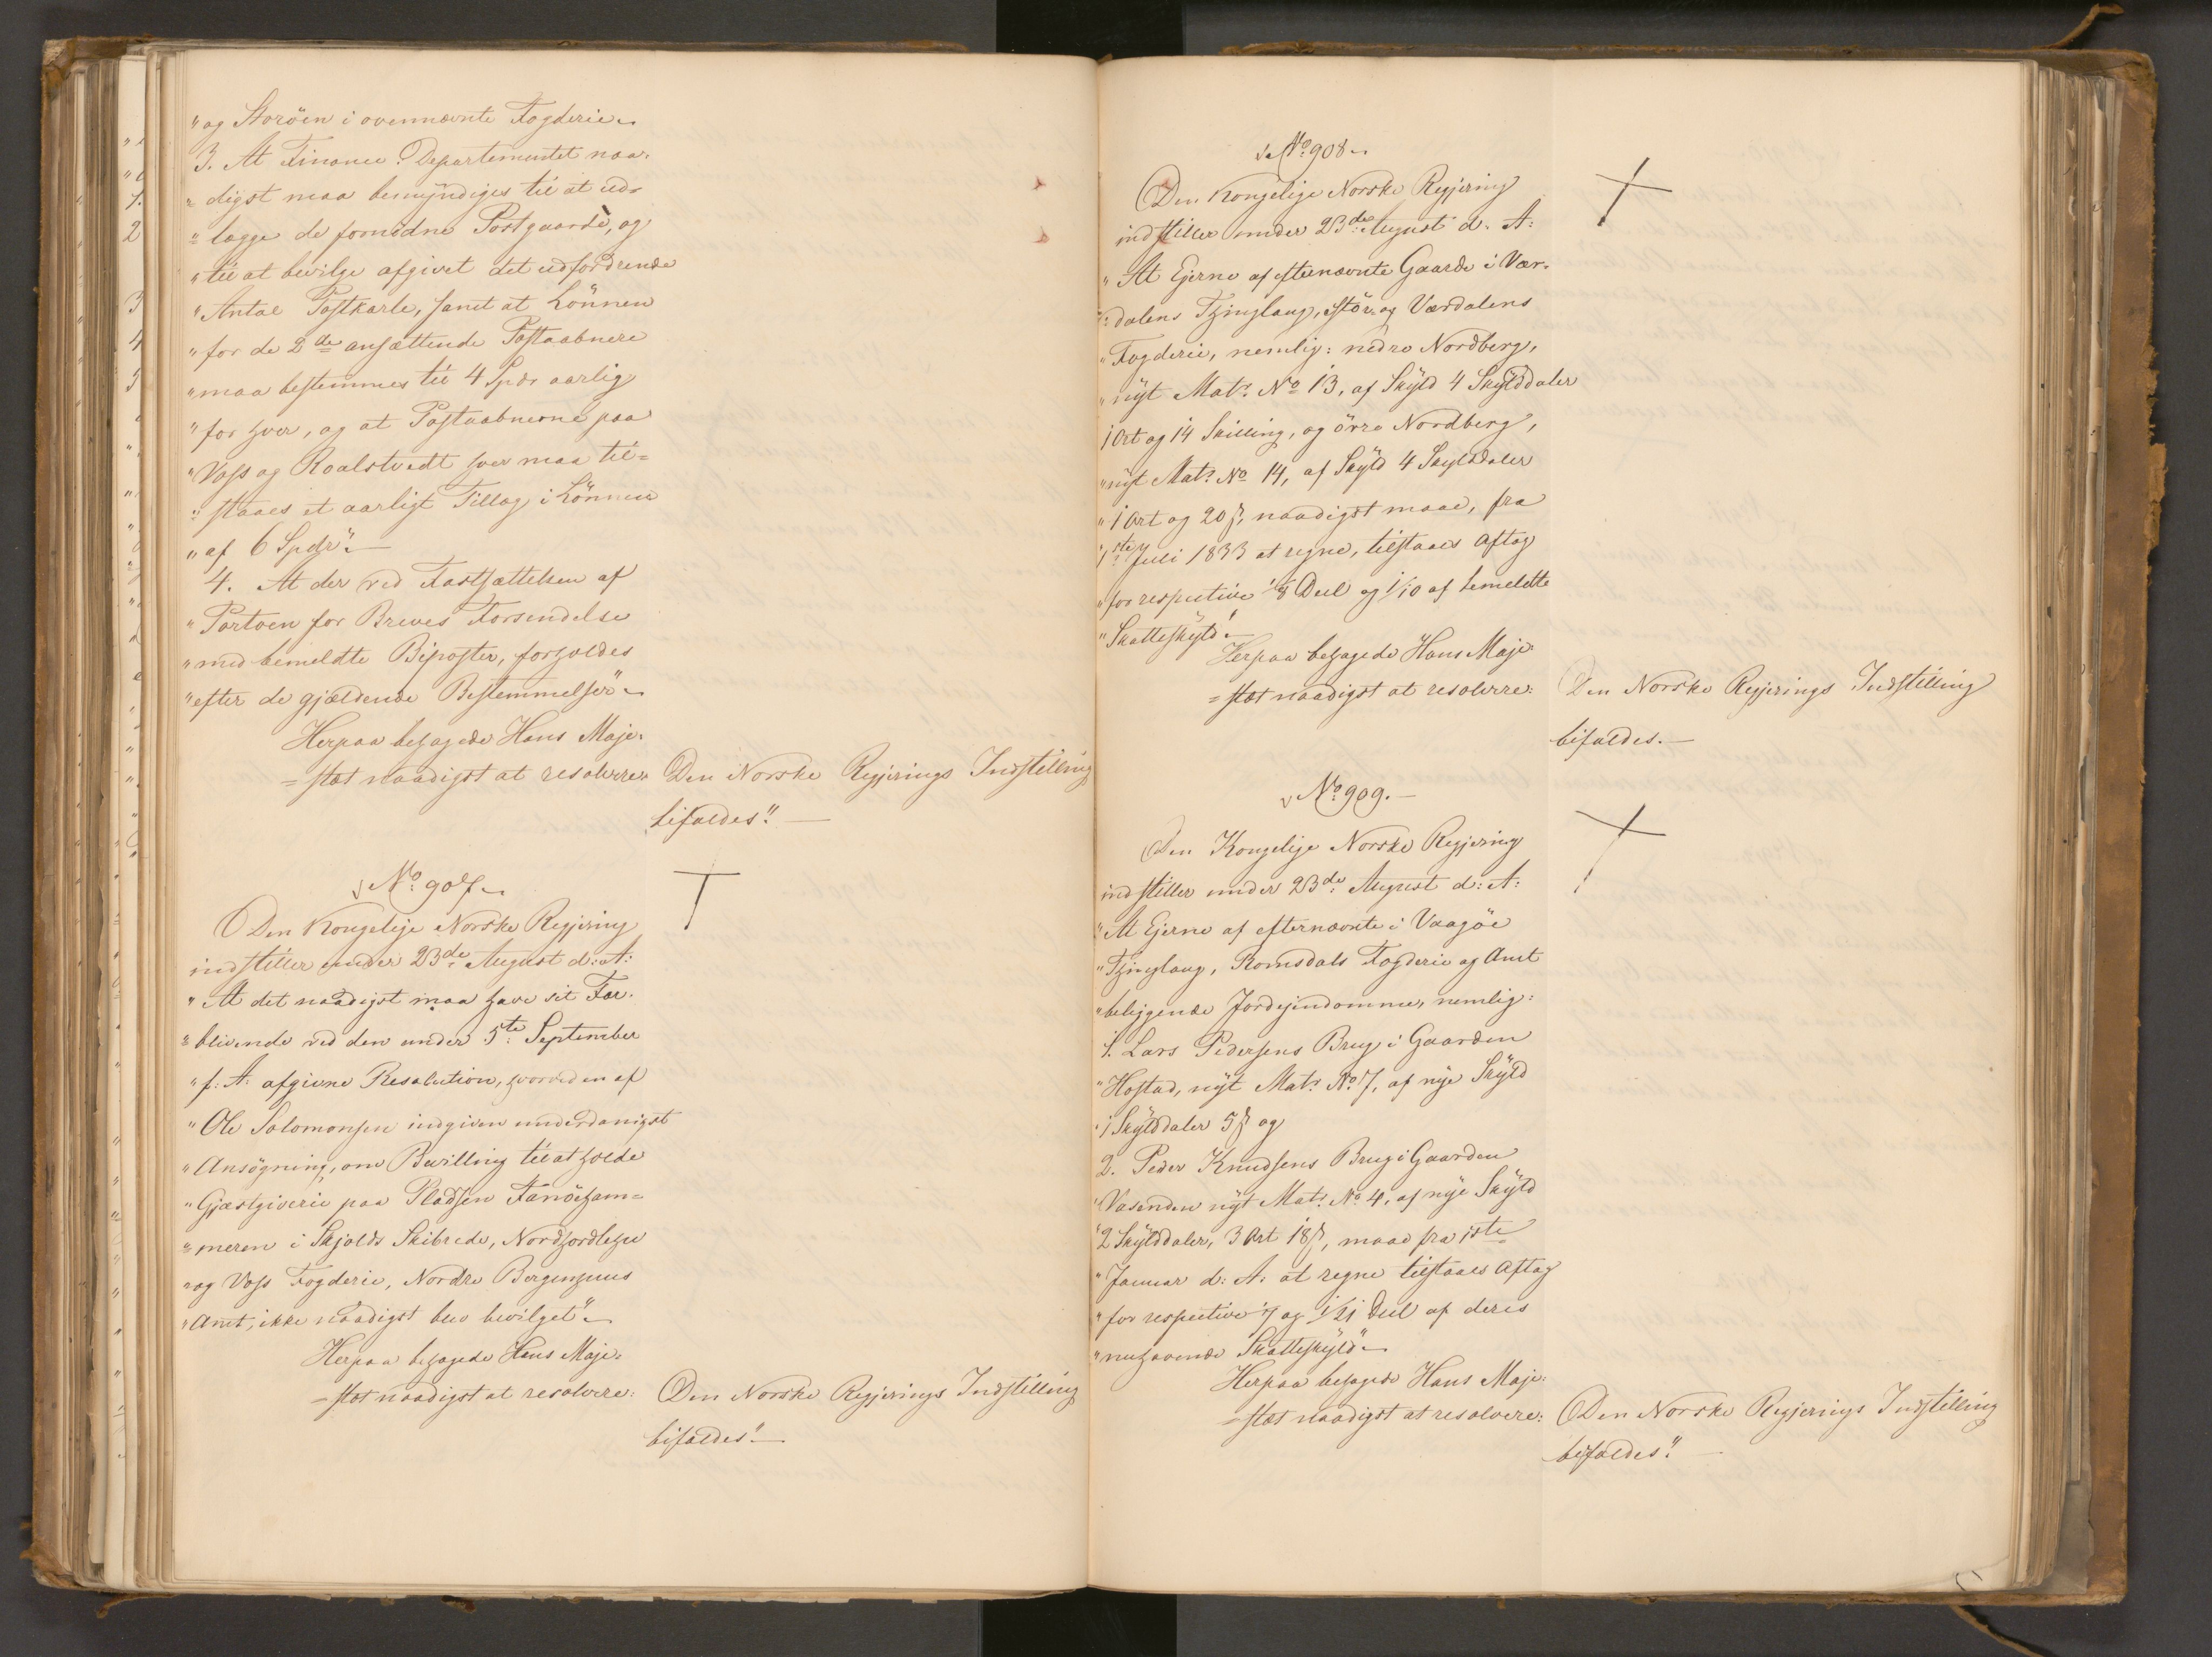 "og Storöen i ovennævnte Fogderie.
3. At Finance-Departementet naa-
"digst maa bemyndiges til at ud-
"lægge de fornödne Postgaarde, og
"til at bevilge afgivet det udfordrende
"Antal Postkarle, samt at Lönnen
"for de 2de ansættende Postaabnere
"maa bestemmes til 4 Spdr aarlig
"for hver, og at Postaabnerne paa
"Voss og Roalstvedt hver maa til=
"staaes et aarligt Tillæg i Lönnen
"af 6 Spdr".—
4. At der ved Fastsættelsen af
"Portoen for Breves Forsendelse
"med bemeldte Biposter, forholdes
"efter de gjældende Bestemmelser".
Herpaa behagede Hans Maje-
=stæt naadigst at resolvere: Den Norske Regjerings Indstilling
bifaldes".—
No 907.
Den Kongelige Norske Regjering
indstiller under 23de August d: A:
"At det naadigst maa have sit For-
"blivende ved den under 5te September
"f: A: afgivne Resolution, hvorved en af
"Ole Salomonsen indgiven underdanigst
"Ansögning, om Bevilling til at holde
"Gjæstgiverie paa Pladsen Fanöeham=
"meren i Skjolds Skibrede, Nordhordlehn
"og Voss Fogderie, Nordre Bergenhuus
"Amt, ikke naadigst blev bevilget".
Herpaa behagede Hans Maje-
=stæt naadigst at resolvere: Den Norske Regjerings Indstilling
bifaldes".—
No 908.
Den Kongelige Norske Regjering
indstiller under 23de August d. A:
"At Ejerne af efternævnte Gaarde i Vær-
"dalens Thinglaug, Stör- og Værdalens
"Fogderie, nemlig: nedre Nordberg,
"nyt Matr. No 13, af Skyld 4 Skylddaler
1 Ort og 14 Skilling, og övre Nordberg,
"nyt Matr. No 14, af Skyld 4 Skylddaler
"1 Ort og 20 ß, naadigst maae, fra
"1ste Juli 1833 at regne, tilstaaes Aftag
"for respective 1/8 Deel og 1/10 af bemeldte
"Skatteskyld".
Herpaa behagede Hans Maje-
=stæt naadigst at resolvere: Den Norske Regjerings Indstilling
bifaldes.—
No 909.—
Den Kongelige Norske Regjering
indstiller under 23de August d: A:
"At Ejerne af efternævnte i Vaagöe
"Thinglaug, Romsdals Fogderie og Amt
"beliggende Jordejendomme, nemlig:
1. Lars Pedersens Brug i Gaarden
"Hostad, nyt Matr. No 7, af nye Skyld
"1 Skylddaler 5 ß og
2. Peder Knudsens Brug i Gaarden
"Vasenden nyt Matr. No 4, af nye Skyld
"2 Skylddaler, 3 Ort 18 ß, maae fra 1ste
"Januar d: A: at regne tilstaaes Aftag
"for respective 1/7 og 1/21 Deel af deres
"nuhavende Skatteskyld".
Herpaa behagede Hans Maje-
=stæt naadigst at resolvere: Den Norske Regjerings Indstilling
bifaldes".—